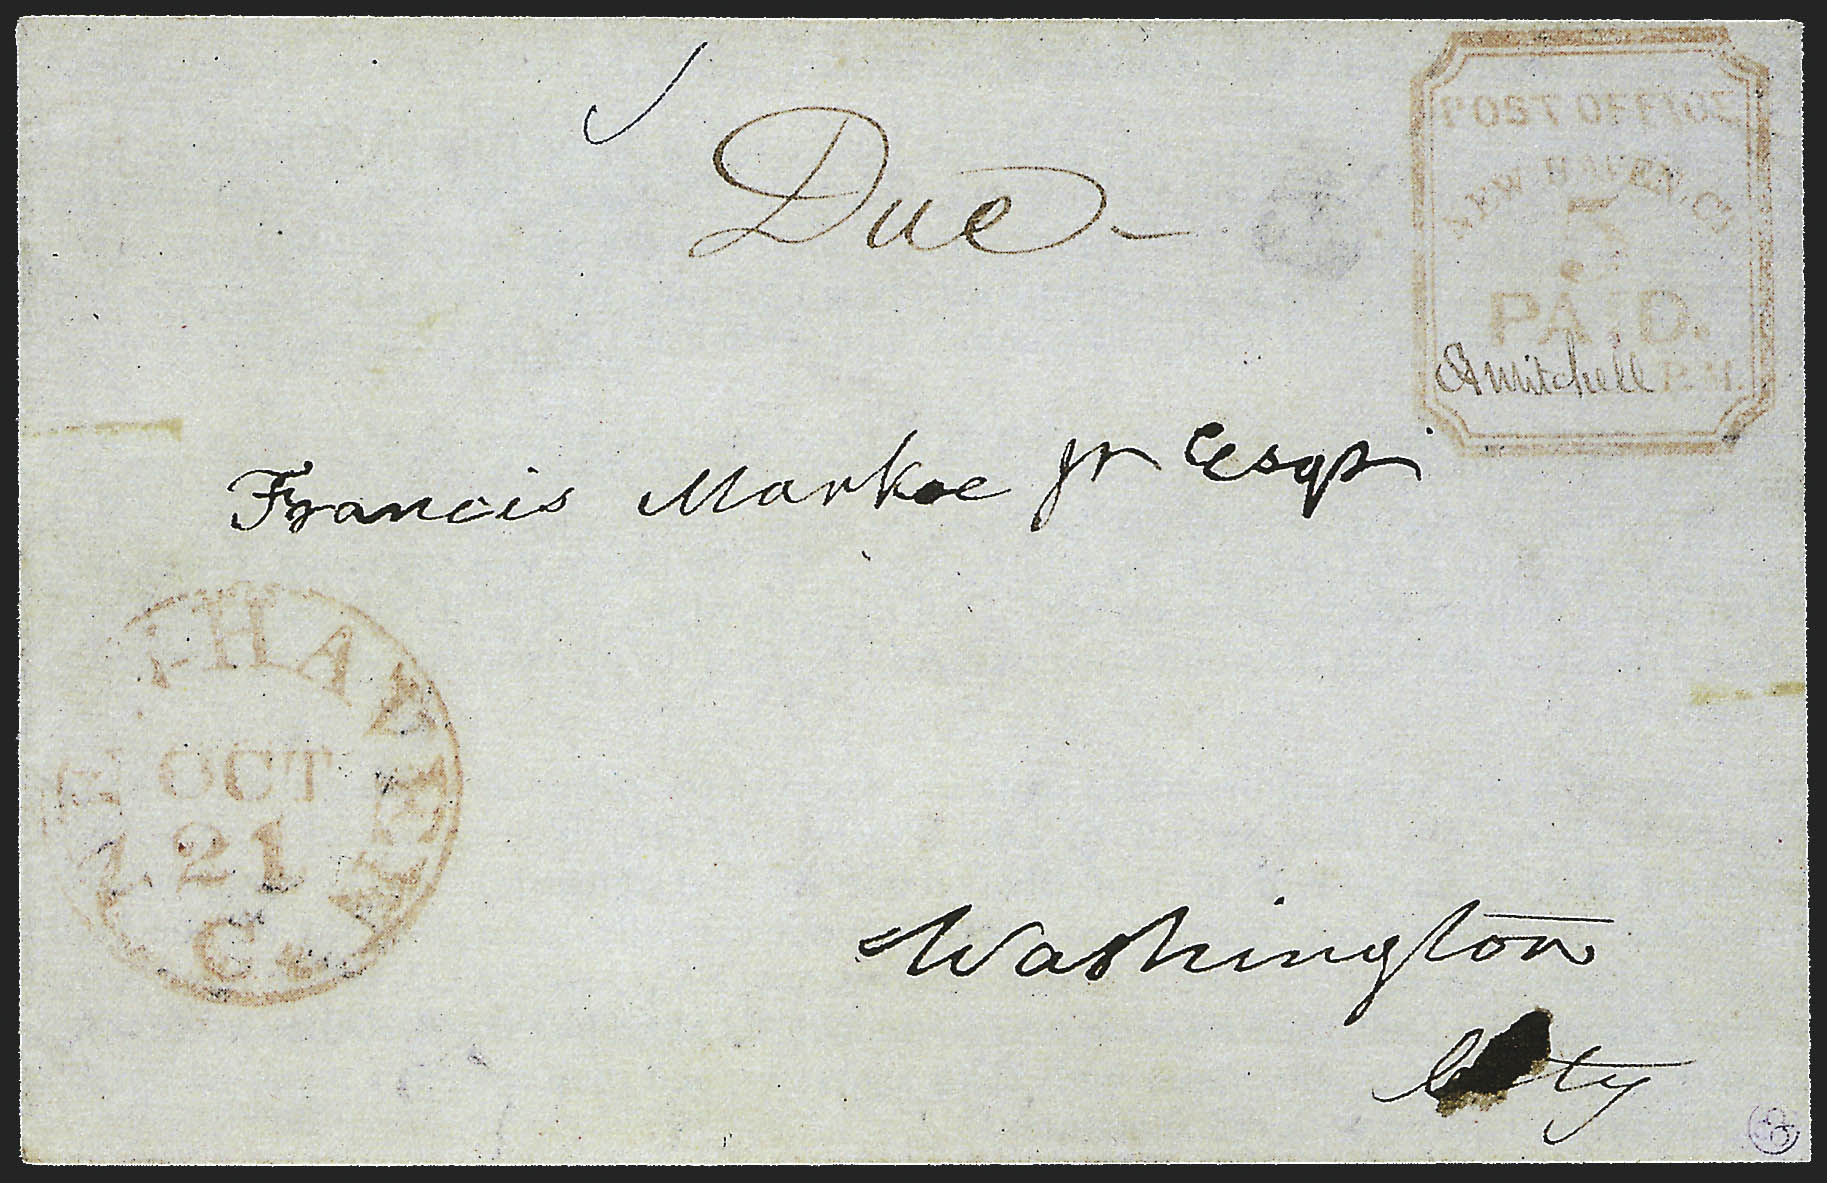 Due
POST OFFICE
NEW HAVEN, CT
5
PAID.
E A Mitchell P. M.
Francis Markoe Jr Esqr
NEW-HAVEN
OCT
21
Ct
Washington
City